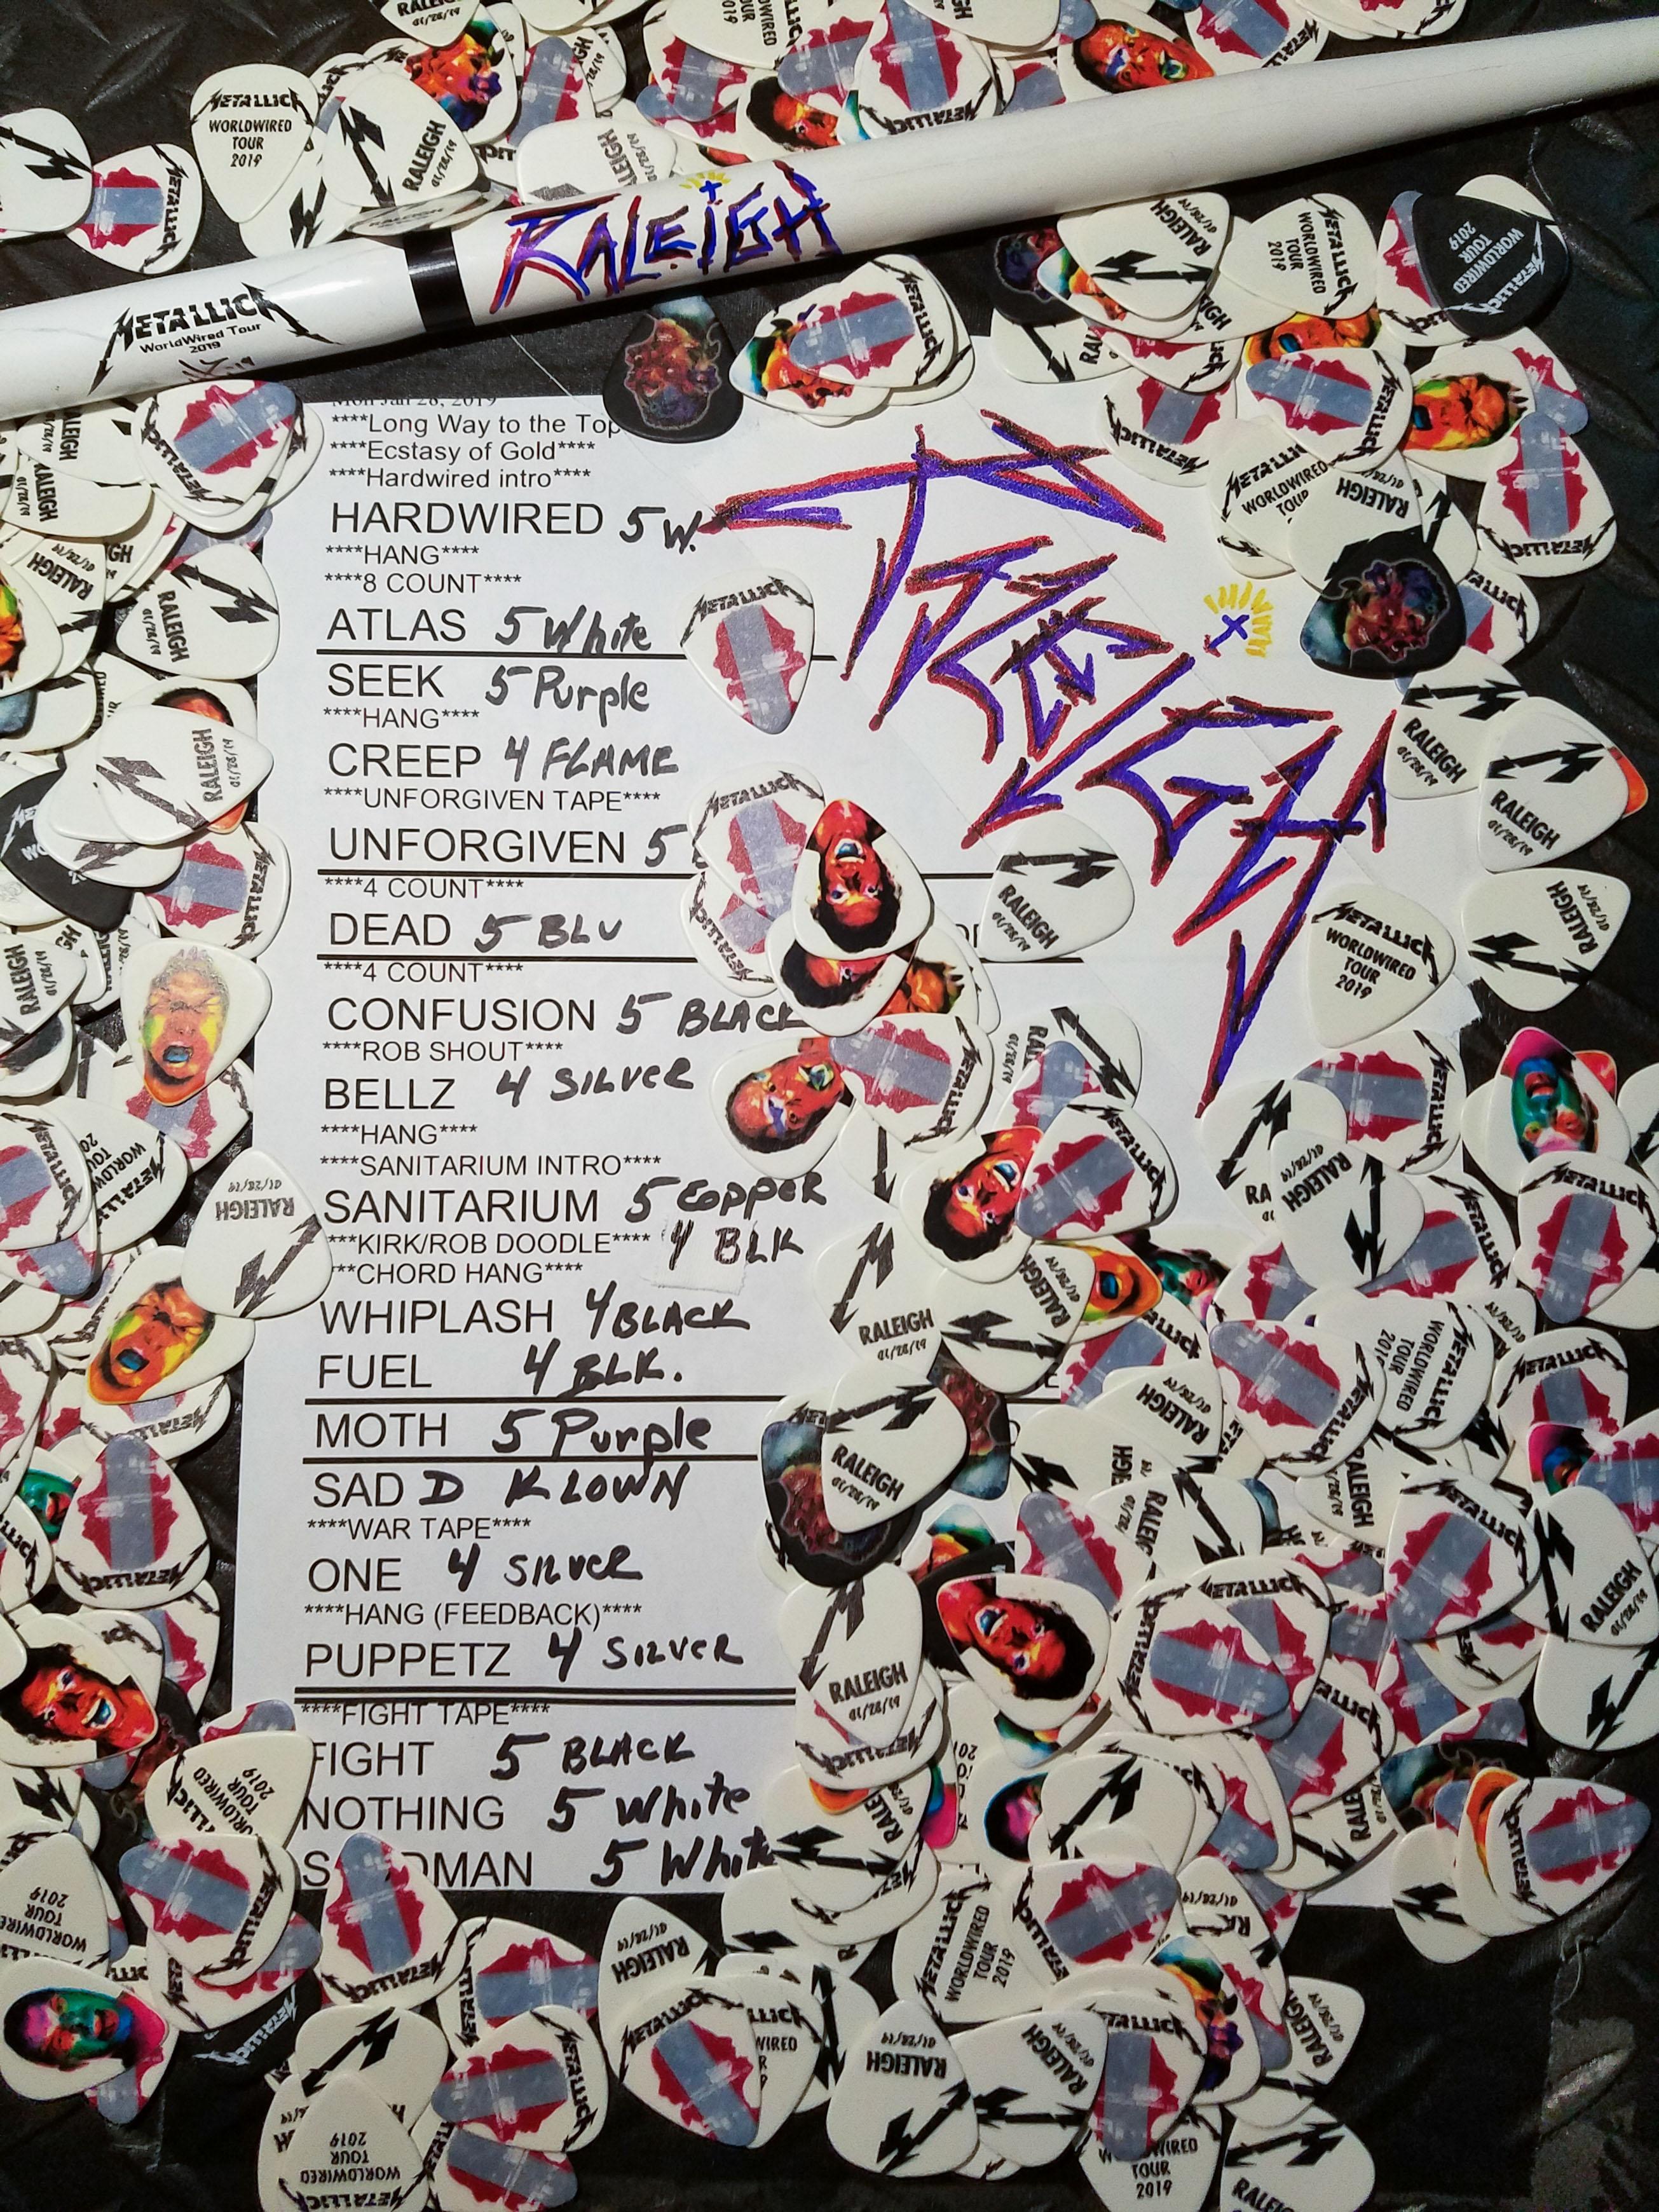 METALLICA
WORLDWIRED
TOUR
2019
RALEIGH
01/28/19
METALLICA
WorldWired Tour
2019
RALEIGH
Mon Jan 28, 2019
****Long Way to the Top
****Ecstasy of Gold****
****Hardwired intro****
HARDWIRED 5 W.
****HANG****
****8 COUNT****
ATLAS 5 White
SEEK 5 Purple
****HANG****
CREEP 4 FLAME
****UNFORGIVEN TAPE****
UNFORGIVEN 5
****4 COUNT****
DEAD 5 BLU
****4 COUNT****
CONFUSION 5 BLACK
****ROB SHOUT****
BELLZ 4 SILVER
****HANG****
****SANITARIUM INTRO****
SANITARIUM 5 COPPER
***KIRK/ROB DOODLE**** 4 BLK
***CHORD HANG****
WHIPLASH 4 BLACK
FUEL 4 BLK.
MOTH 5 Purple
SAD D KLOWN
****WAR TAPE****
ONE 4 SILVER
****HANG (FEEDBACK)****
PUPPETZ 4 SILVER
****FIGHT TAPE****
FIGHT 5 BLACK
NOTHING 5 White
S DMAN 5 White
RALEIGH
METALLICA
RALEIGH
01/28/19
METALLICA
WORLDWIRED
TOUR
2019